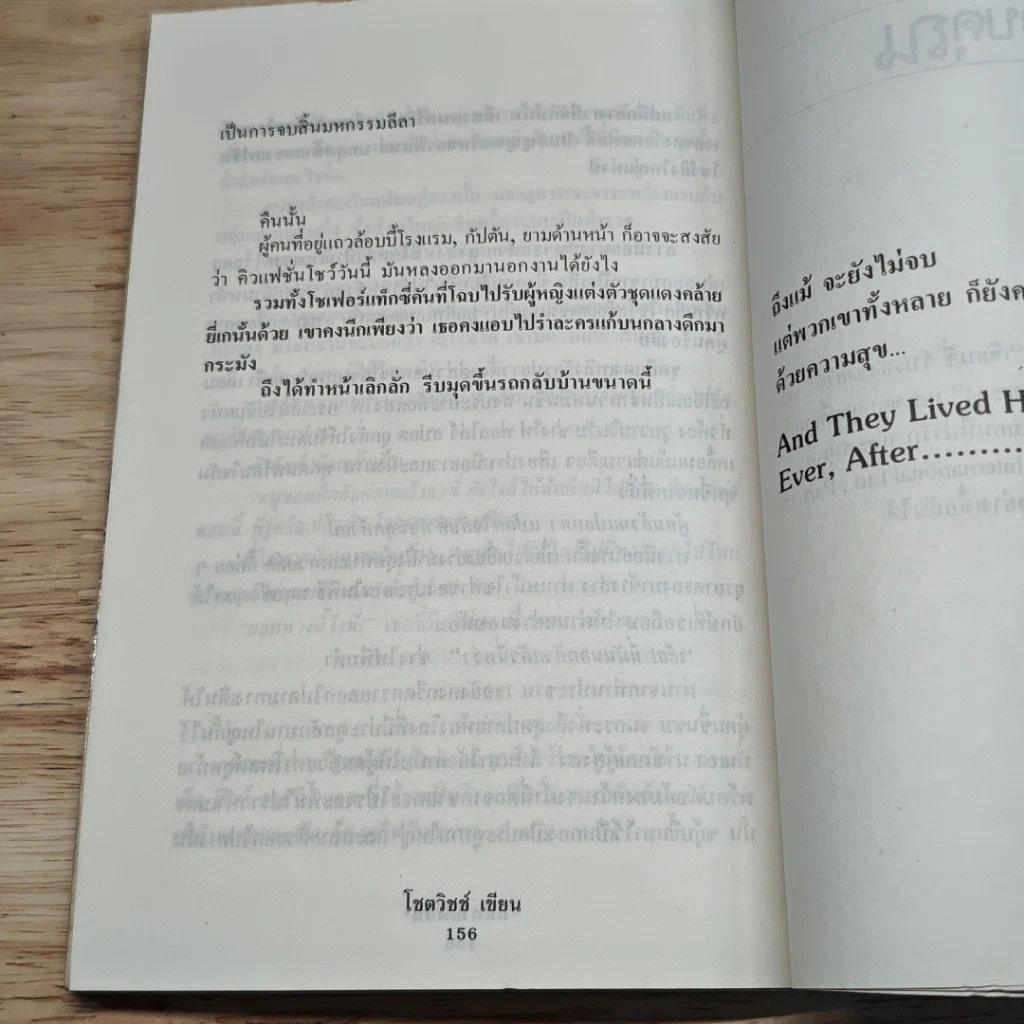 เป็นการจบสิ้นมหกรรมลีลา
คืนนั้น
ผู้คนที่อยู่แถวล้อบบี้โรงแรม, กัปตัน, ยามด้านหน้า ก็อาจจะสงสัย
ว่า คิวแฟชั่นโชว์วันนี้ มันหลงออกมานอกงานได้ยังไง
รวมทั้งโชเฟอร์แท็กซี่คันที่โฉบไปรับผู้หญิงแต่งตัวชุดแดงคล้าย
ยี่เกนั้นด้วย เขาคงนึกเพียงว่า เธอคงแอบไปรำละครแก้บนกลางดึกมา
กระมัง
ถึงได้ทำหน้าเลิกลั่ก รีบมุดขึ้นรถกลับบ้านขนาดนี้
โชตวิชช์ เขียน
156
ถึงแม้ จะยังไม่จบ
แต่พวกเขาทั้งหลาย ก็ยังค
ด้วยความสุข...
And They Lived H
Ever, After.........